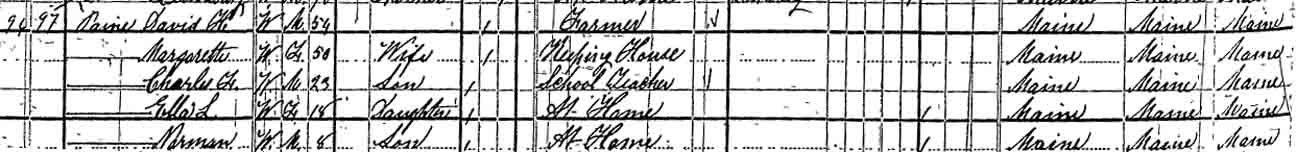 96 97 Paine David H. W M 54 / Farmer Maine Maine Maine
Margarette W F 50 Wife / Keeping House Maine Maine Maine
Charles F. W M 23 Son / School Teacher Maine Maine Maine
Ella L. W F 18 Daughter / At Home / Maine Maine Maine
Norman W M 8 Son / At Home / Maine Maine Maine